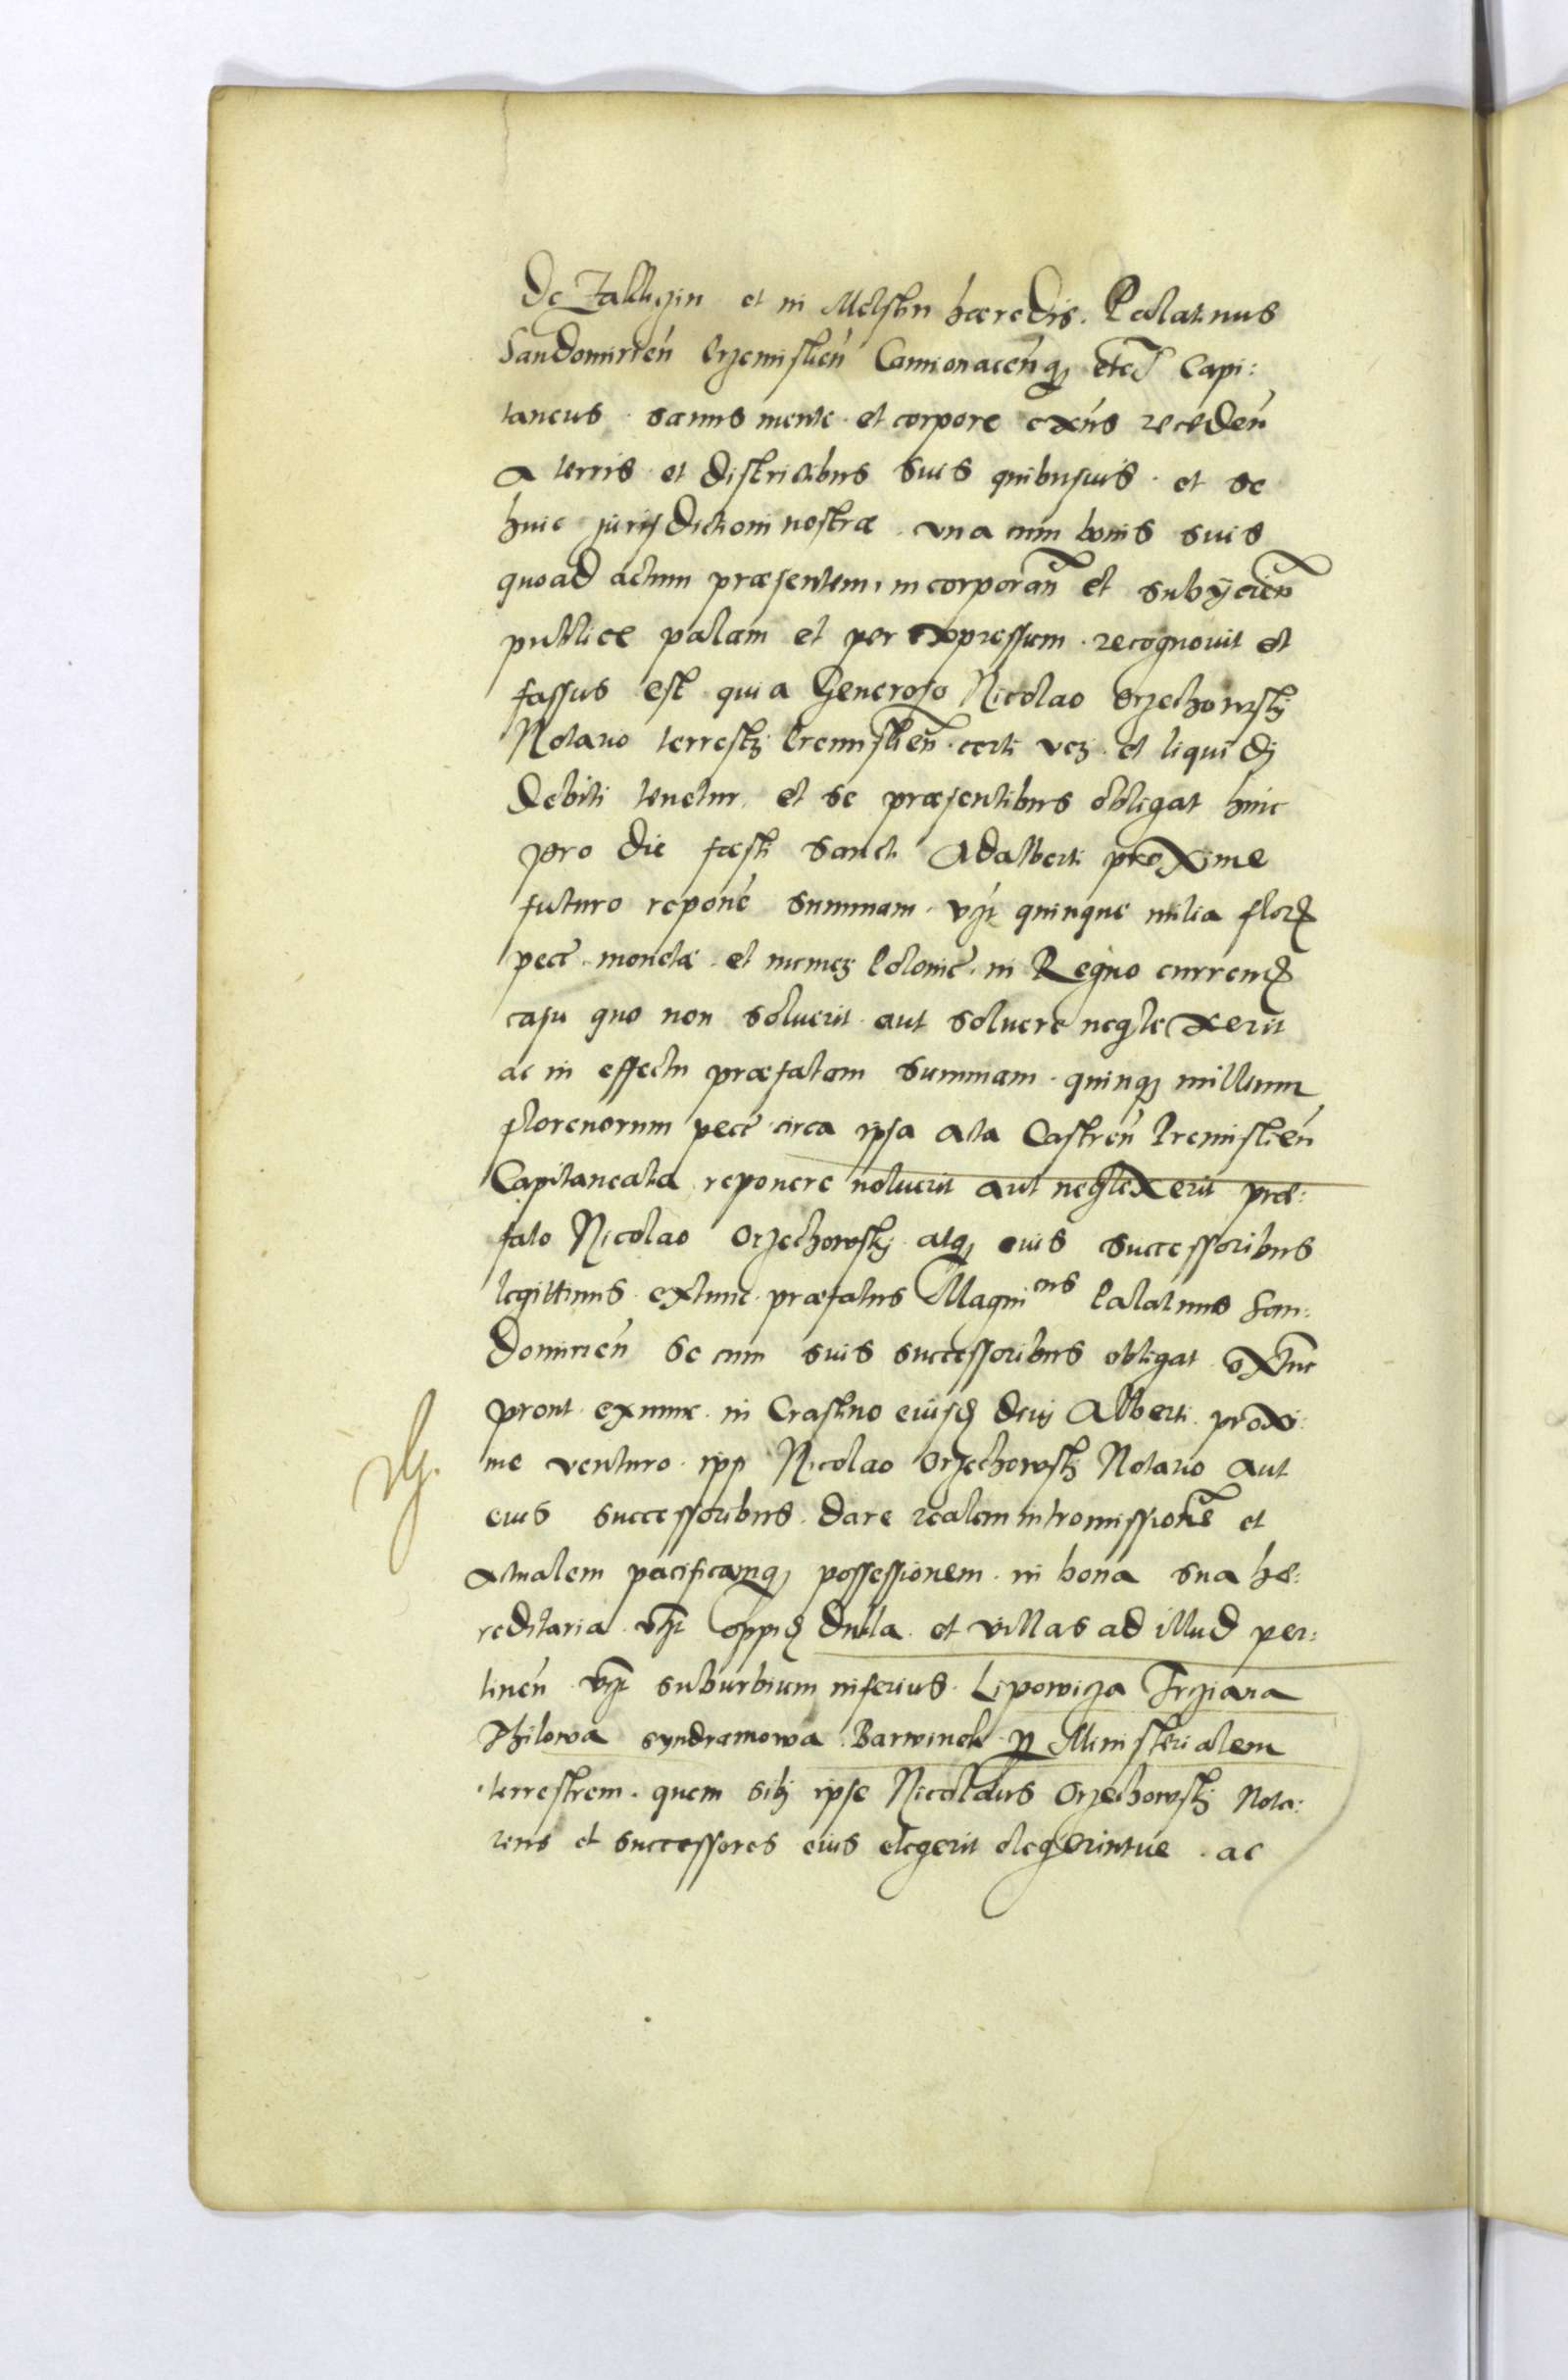 De Zakliczin et in Melstin hæredis. Palatinus
Sandomirień Przemislień Camionaceńq₃ etc Capi:
taneus. sanus mente. et corpore exńs recedeń
a terris. et districtibus suis quibusuis. et se
huic jurisdictioni nostræ. una cum bonis suis
quoad actum præsentem, incorporań et subÿcień
publice palam et per expressum. recognouit et
fassus est quia Generoso Nicolao Orzechowskj
Notario terrestrj Premislień. certi verj. et liquidj
debiti tenetur. et se præsentibus obligat hinc
pero die fæsti Sancti Adalberti proxime
futuro reponé summam. vꝫt quinque milia flor
pecć. monetæ. et numerj Polonić. in Regno current
casu quo non soluerit. aut soluere neglexerit
ac in effectu præfatam summam. quinq₃ millium
florenorum pecć circa ipsa acta Castreń Premislień
Capitanealia reponere noluerit aut neglexerit præ:
fato Nicolao Orzechowskj. atq₃ euis successoribus
legittimis. extunc. præfatus Magnicus Palatinus San:
domirień se cum suis successoribus obligat extunc
prout. exnunc. in Crastino eiusd diui Alberti. proxi:
me venturo. ipsi Nicolao Orzechowskj Notario aut
eius successoribus. dare realem intromissionē et
actualem pacificamq₃ possessionem. in bona sua hæ:
reditaria. vꝫt oppid Dukla. et villas ad illud per:
tineń vꝫt suburbium inferius. Lipowicza Trziana
Thilowa syndramowa. Barwinek. p Ministerialem
terrestrem. quem sibj ipse Nicolaus Orzechowskj Nota:
rius et successores eius elegerit elegerintue. ac